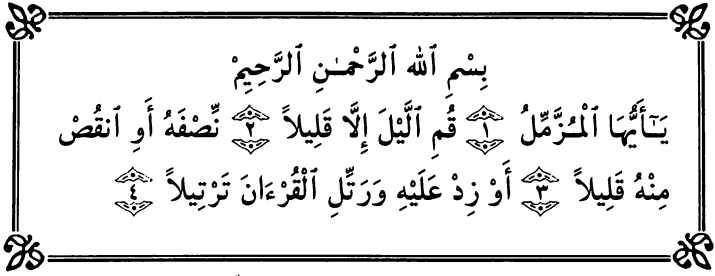 بِسْمِ ٱللهِ ٱلرَّحْمَـٰنِ ٱلرَّحِيمْ
يَـٰٓأَيُّهَا ٱلْمُزَّمِّلُ ١ قُمِ ٱلَّيْلَ إِلَّا قَلِيلاً ٢ نِّصْفَهُ أَوِ ٱنقُصْ
مِنْهُ قَلِيلاً ٣ أَوْ زِدْ عَلَيْهِ وَرَتِّلِ ٱلْقُرْءَانَ تَرْتِيلاً ٤